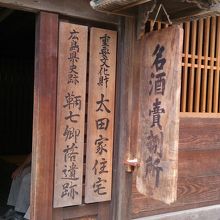 名酒賣捌所
重要文化財
太田家住宅
広島県史跡
鞆七卿落遺跡